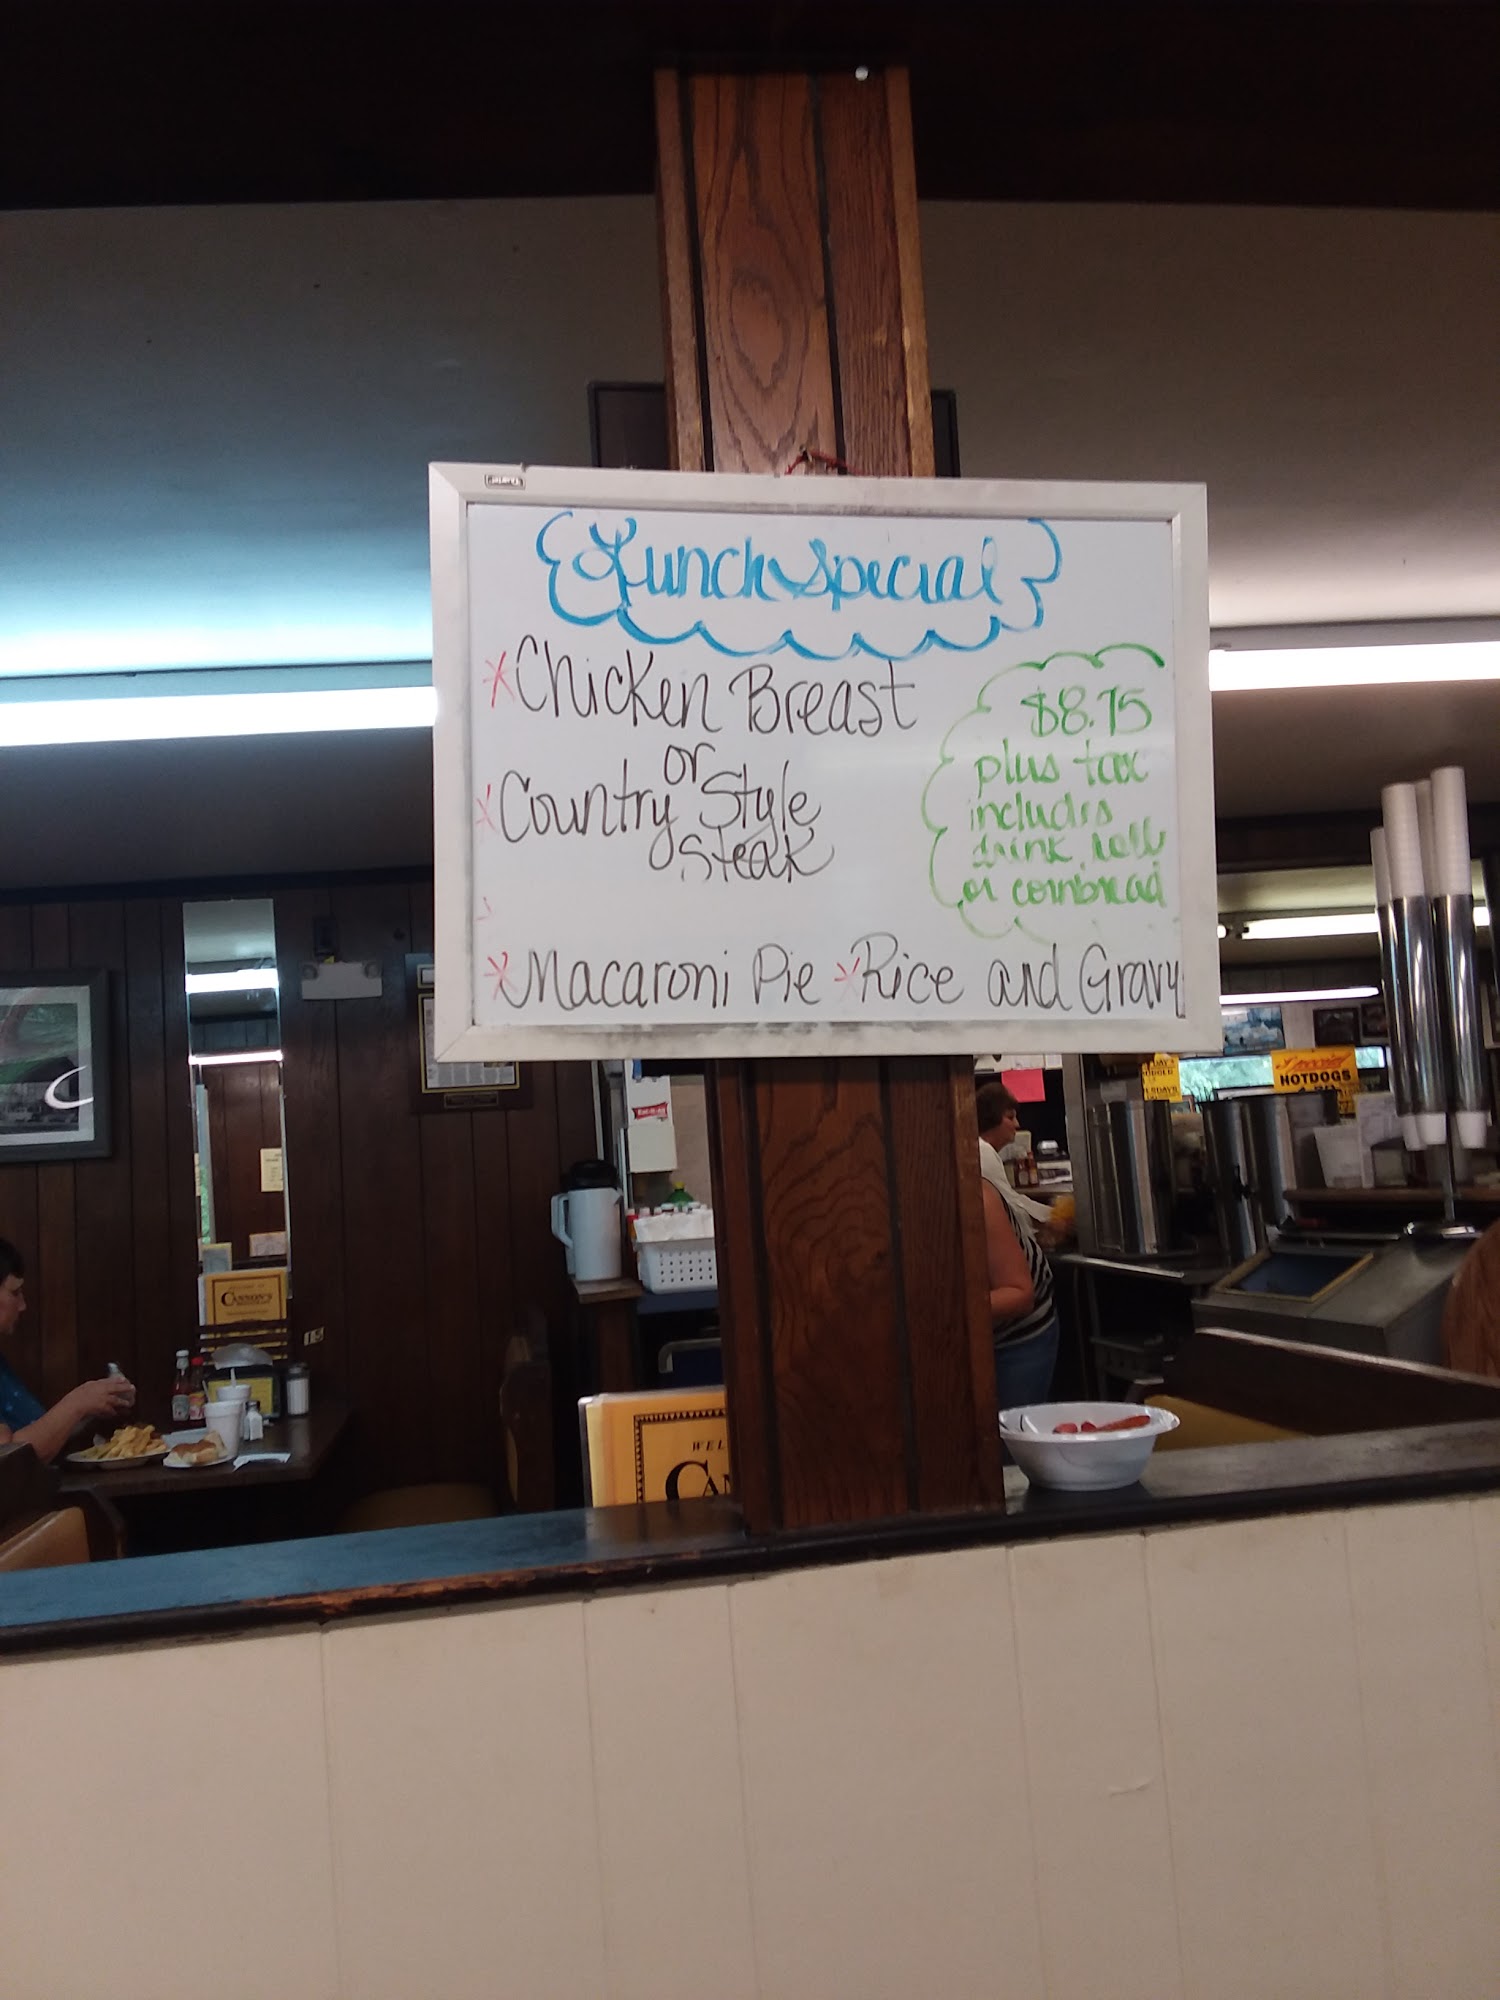 Lunch Special
*Chicken Breast
or
*Country Style
Steak
*Macaroni Pie *Rice and Gravy
$8.75
plus tax
includes
drink, roll
or cornbread
HOTDOGS
CANNON'S
15
WEL
CAN